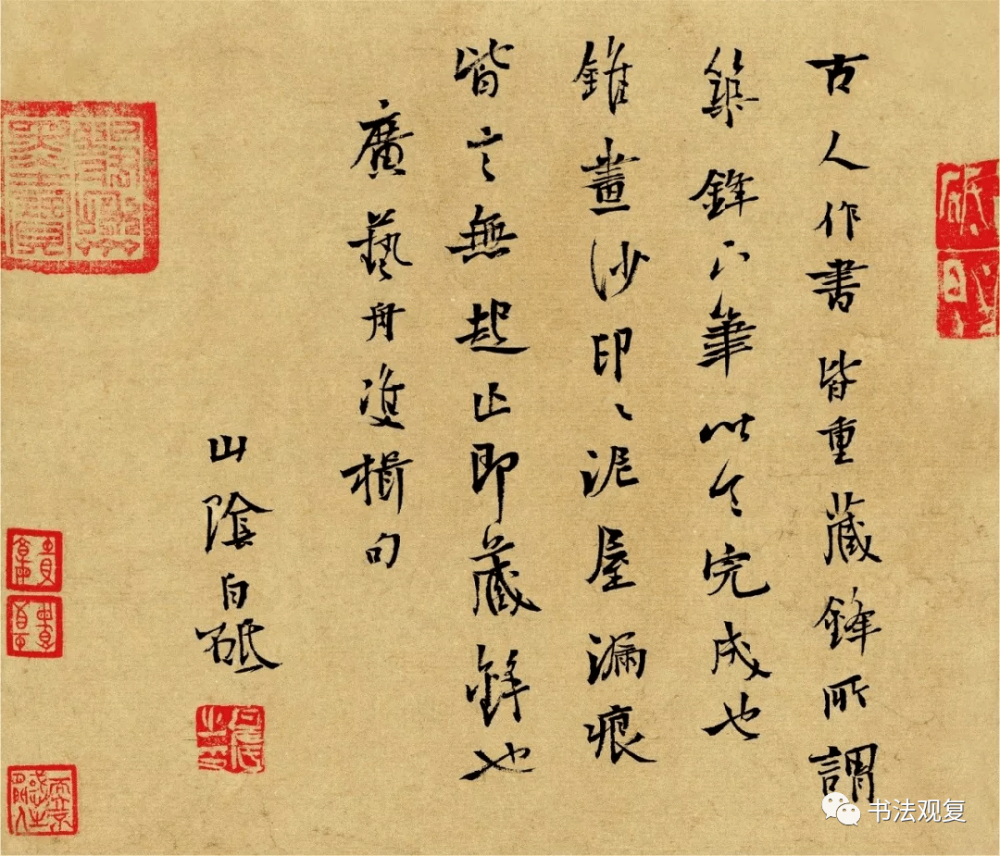 古人作書皆重藏鋒所謂
築鋒下筆令完成也
錐畫沙印々泥屋漏痕
皆言無起止即藏鋒也
廣藝舟雙楫句
山陰白砥
书法观复